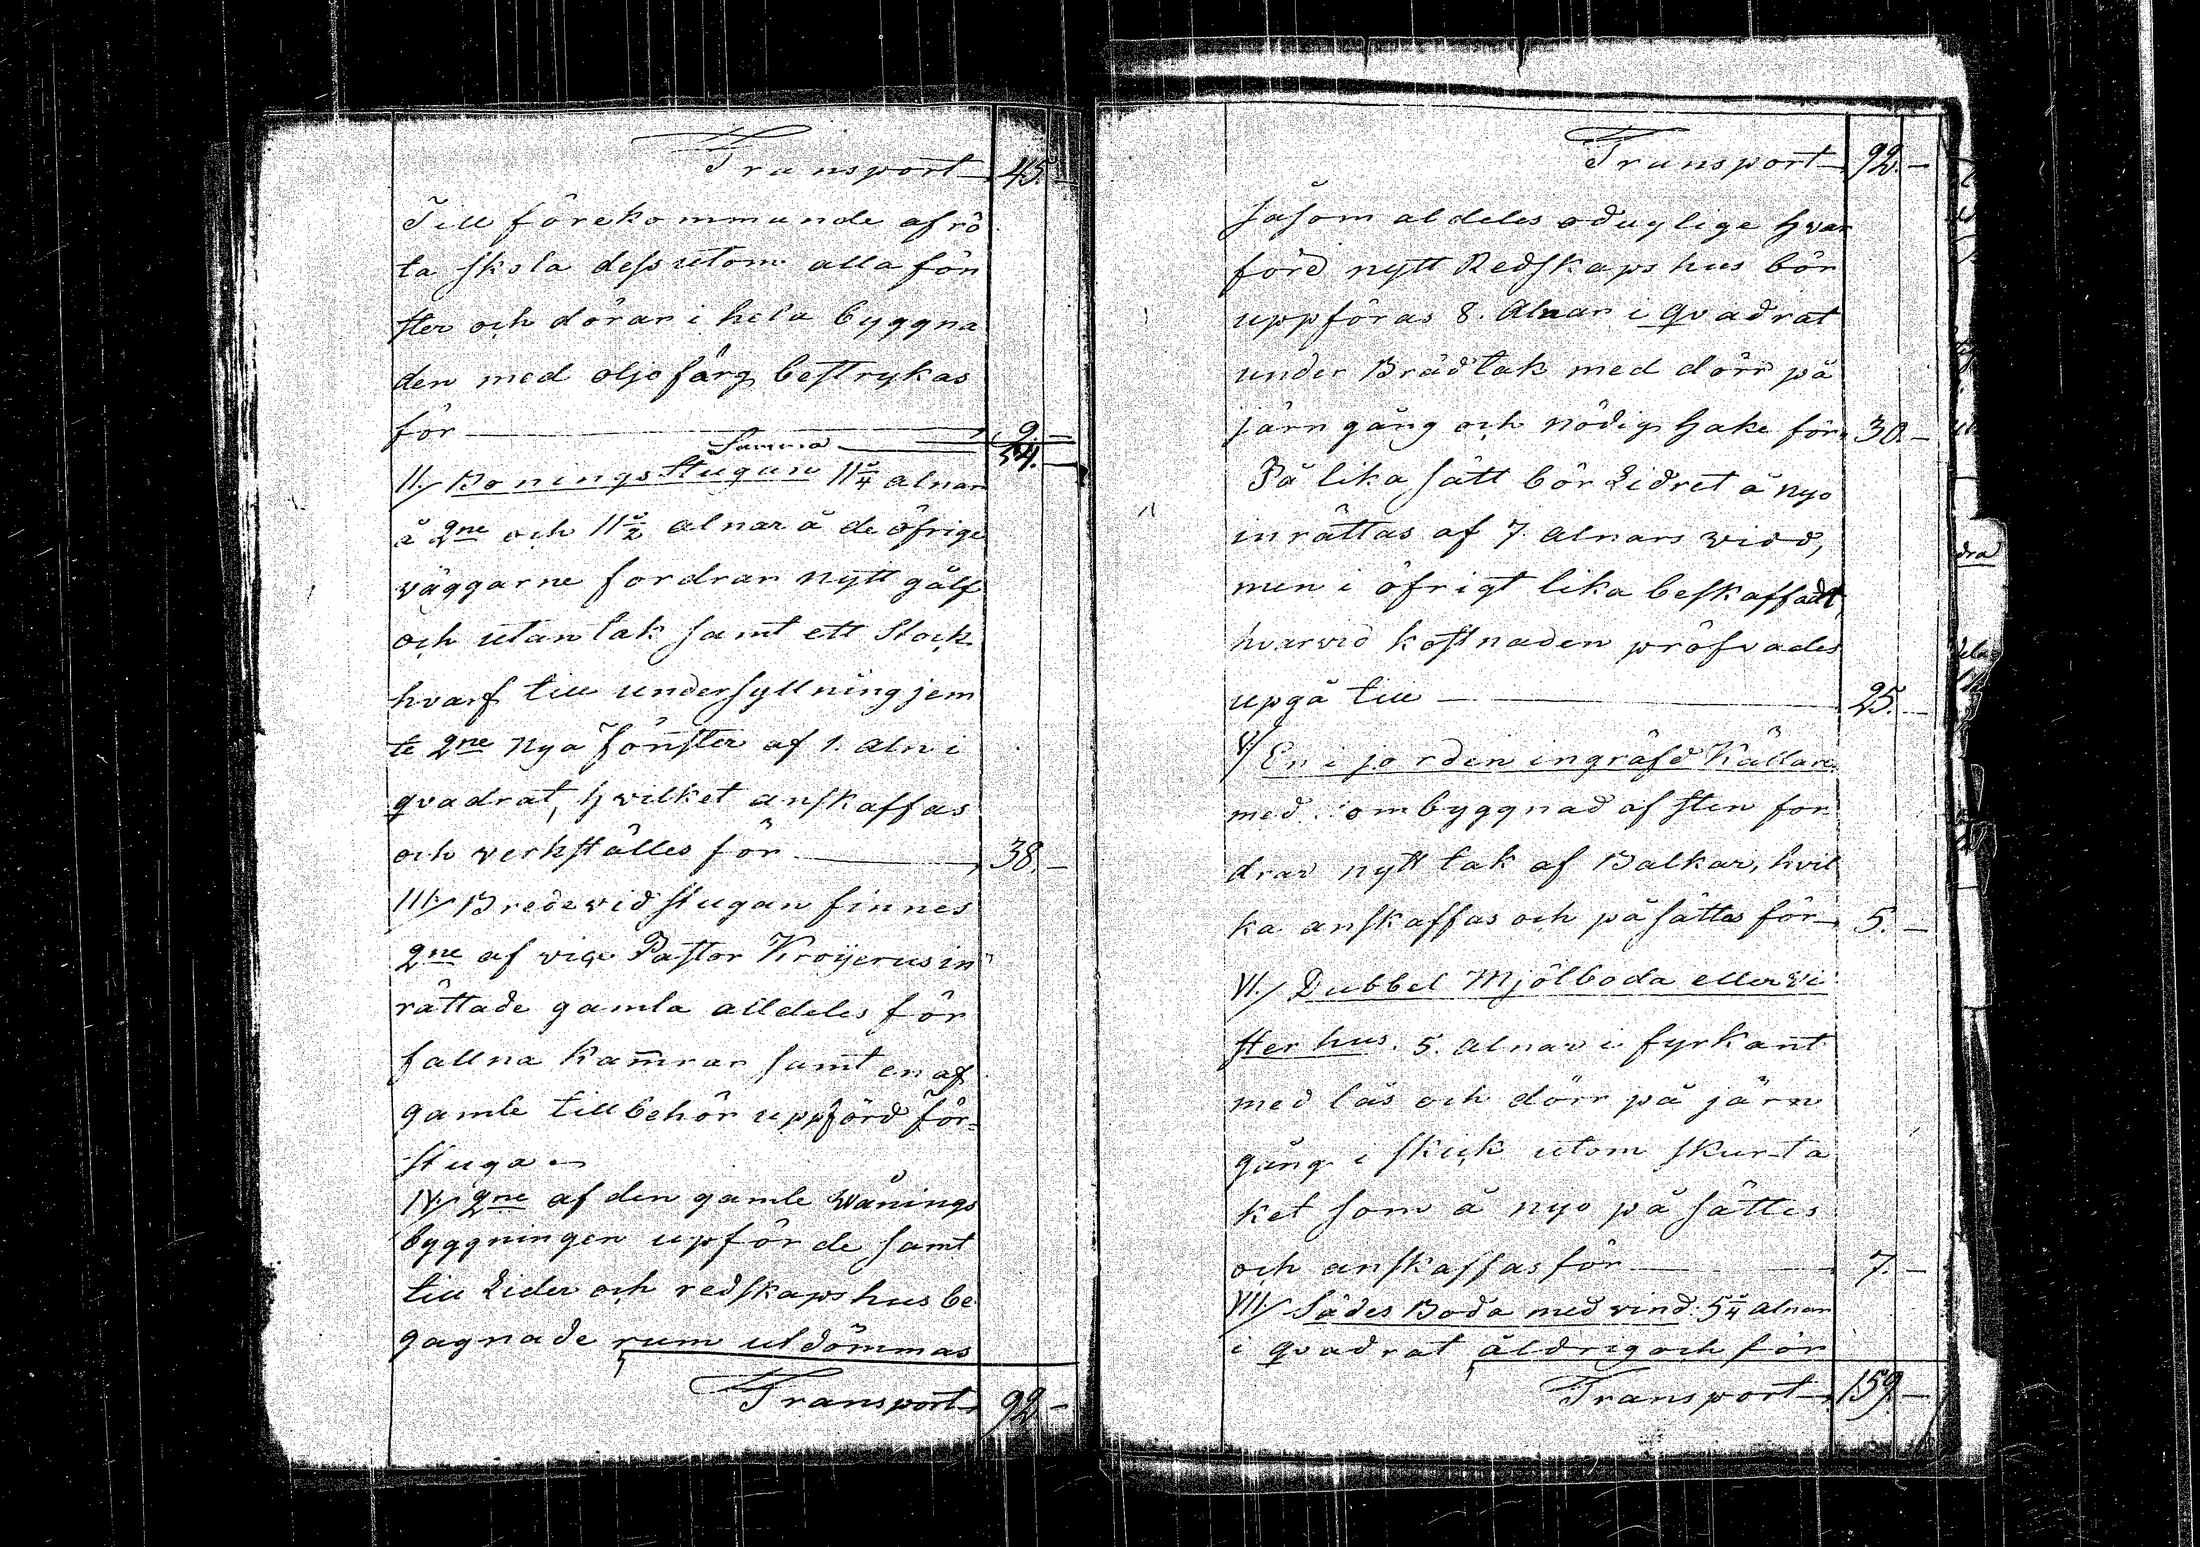 Transport 45. —
Till förekommande af rö
ta skola dessutom alla fön
ster och dörar i hela byggna
den med oljefärg bestrykas
för — 9. —
Summa — 54. —
II./ Boningsstugan 11¾ alnar
å 2ne och 11½ alnar å de öfrige
väggarne fordrar nytt gålf
och utantak samt ett Stock
hvarf till undersyllning jem
te 2ne nya Fönster af 1. aln i
qvadrat, hvilket anskaffas
och verkställes för — 38. —
III/ Bredevid stugan finnes
2ne af vice Pastor Kröijerus in
rättade gamla alldeles för
fallna kamrar samt en af
gamle tillbehör uppförd för=
stuga
IV/ 2ne af den gamle Wånings
byggningen upförde samt
till Lider och redskapshus be
gagnade rum utdömmas
Transport 92. —
Transport 92. —
såsom aldeles oduglige hvar
före nytt Redskapshus bör
uppföras 8. Alnar i qvadrat
under Brädtak med dörr på
järn gång och nödig hake för 30. —
På lika sätt bör Lidret å nyo
inrättas af 7. alnars vidd,
men i öfrigt lika beskaffadt,
hvarvid kostnaden pröfvades
upgå till — 25. —
V/ En i jorden ingräfd Källare
med ombyggnad af sten for
drar nytt tak af Balkar, hvil
ka anskaffas och påsättes för 5. —
VI./ Dubbel Mjölboda eller Vi
ster hus. 5. alnar i fyrkant
med lås och dörr på järn
gång i skick utom skurta
ket som å nyo påsättes
och anskaffas för — 7. —
VII/ Sädes Boda med vind. 5¾ alnar
i qvadrat åldrig och för
Transport 159. —